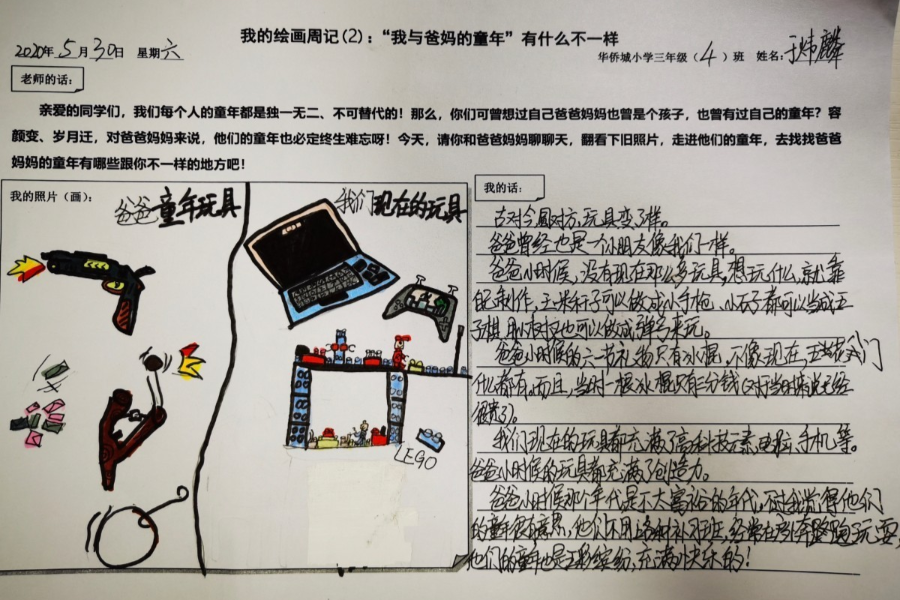 我的绘画周记(2)：“我与爸妈的童年”有什么不一样
2020年5月30日 星期六
华侨城小学三年级（4）班 姓名：于炜麟
老师的话：
亲爱的同学们，我们每个人的童年都是独一无二、不可替代的！那么，你们可曾想过自己爸爸妈妈也曾是个孩子，也曾有过自己的童年？容
颜变、岁月迁，对爸爸妈妈来说，他们的童年也必定终生难忘呀！今天，请你和爸爸妈妈聊聊天，翻看下旧照片，走进他们的童年，去找找爸爸
妈妈的童年有哪些跟你不一样的地方吧！
我的照片（画）：
爸爸童年玩具
我们现在的玩具
LEGO
我的话：
玩具变了样。
爸爸曾经也是一个小朋友像我们一样。
爸爸小时候，没有现在那么多玩具，想玩什么，就靠
自己制作，玉米杆子可以做成小手枪、小石子都可以当成
子棋，树杈也可以做成弹弓来玩。
爸爸小时候的六一节礼物只有冰棍，不像现在
什么都有，而且，当时一根冰棍只有
很贵了）。
我们现在的玩具都充满了高科技元素，电脑、手机等。
爸爸小时候的玩具都充满了创造力。
爸爸小时候那个年代是不太富裕的年代，不过我觉得他们
的童年很有意思，他们不用上各种补习班，经常在奔跑玩耍，
他们的童年也是五彩缤纷，充满快乐的！